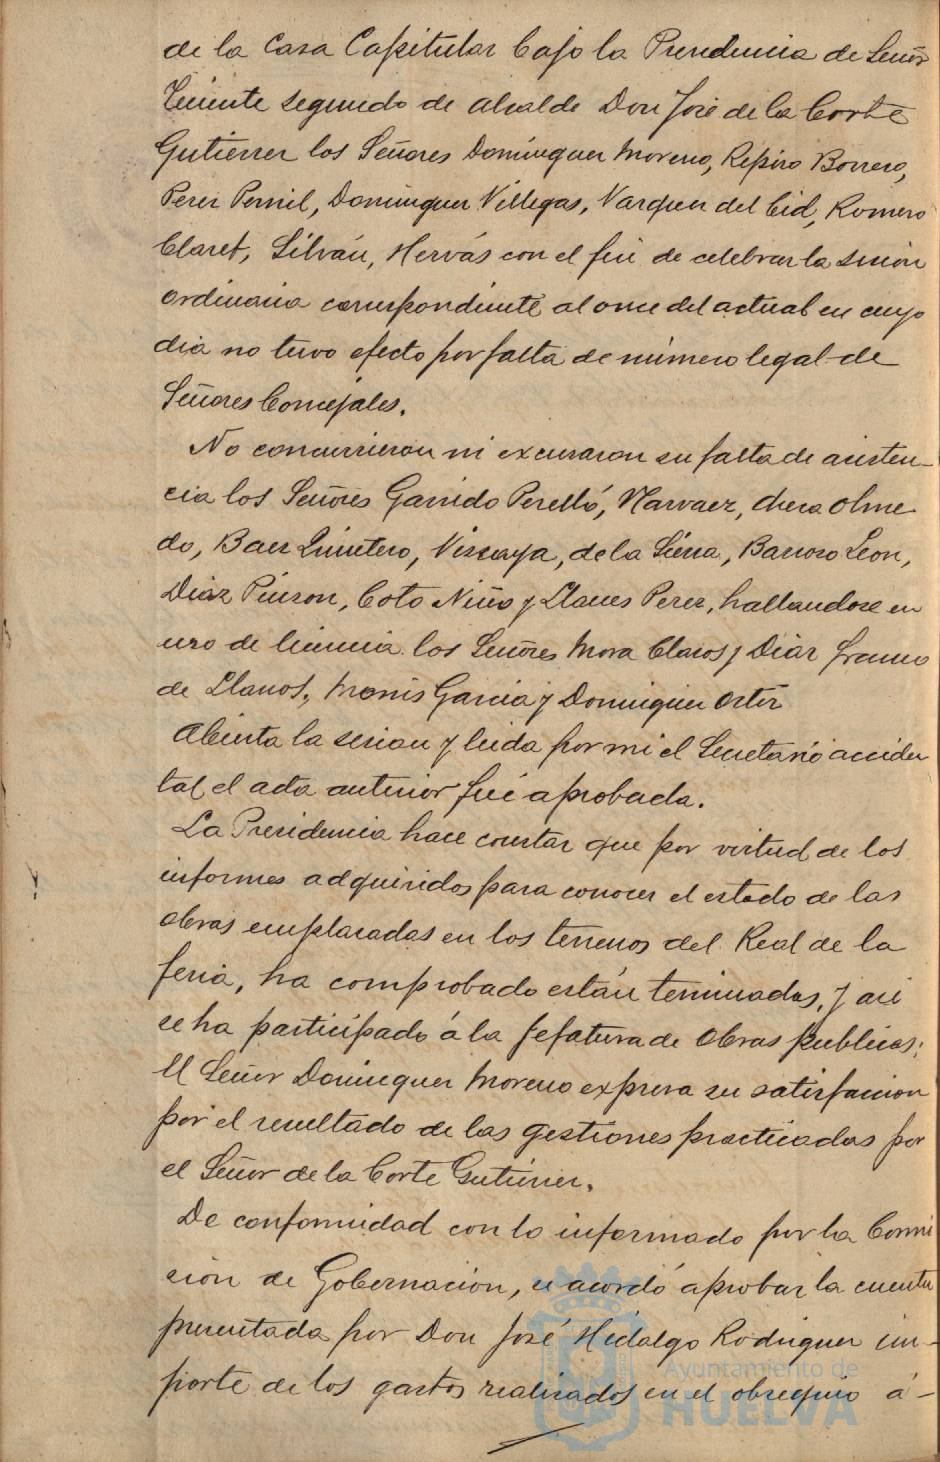 de la Casa Capitular bajo la Presidencia de Señor
Teniente segundo de alcalde Don José de la Corte
Gutierrez los Señores Dominguez Moreno, Repiso Borrero,
Perez Pernil, Dominguez Villegas, Vazquez del Cid, Romero
Claret, Silván, Hervás con el fin de celebrar la sesion
ordinaria correspondiente al once del actual en cuyo
dia no tuvo efecto por falta de número legal de
Señores Concejales.
No concurrieron ni excusaron su falta de asisten-
cia los Señores Garrido Perelló, Narvaez, Olme-
do, Baez Quintero, Vizcaya, de la Sierra, Barroso Leon,
Diaz Pinzon, Coto Niño y Llanes Perez, hallandose en
uso de licencia los Señores Mora Claros y Diaz Franco
de Llanos, Monis Garcia y Dominguez Ortiz
Abierta la sesion y leida por mi el Secretario acciden
tal el acta anterior fué aprobada.
La Presidencia hace constar que por virtud de los
informes adquiridos para conocer el estado de las
obras emplazadas en los terrenos del Real de la
feria, ha comprobado están terminadas, y asi
se ha participado á la Jefatura de Obras publicas;
El Señor Dominguez Moreno expresa su satisfaccion
por el resultado de las gestiones practicadas por
el Señor de la Corte Gutierrez.
De conformidad con lo informado por la Comi
sion de Gobernacion, se acordó aprobar la cuenta
presentada por Don José Hidalgo Rodriguez im-
porte de los gastos realizados en el obsequio á-
Ayuntamiento de
HUELVA